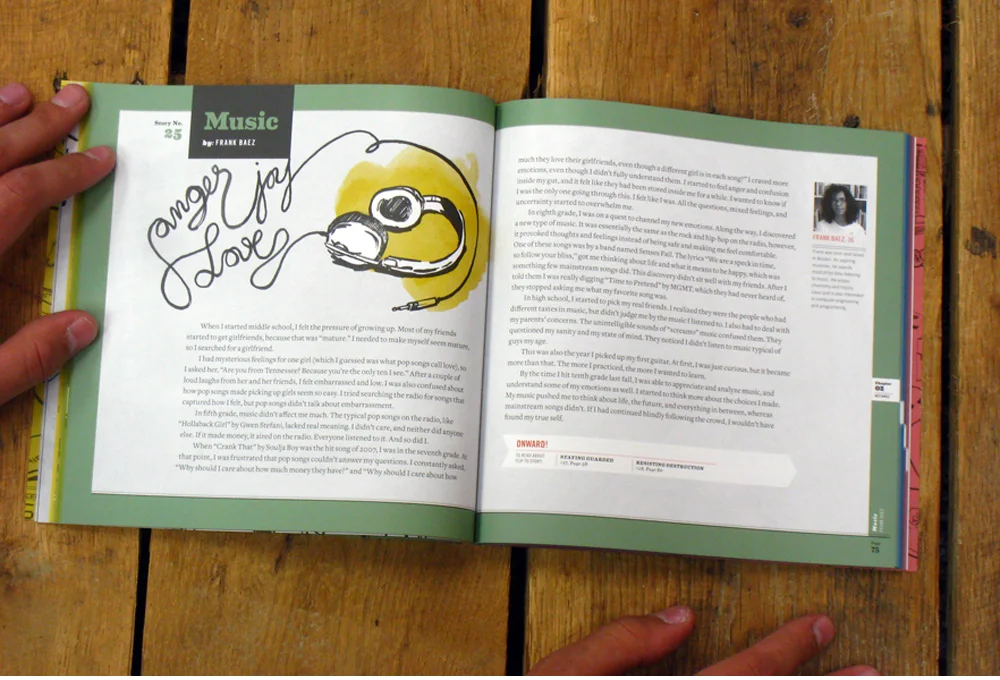 Story No.
25
Music
by: FRANK BAEZ
anger joy
Love
When I started middle school, I felt the pressure of growing up. Most of my friends
started to get girlfriends, because that was "mature." I needed to make myself seem mature,
so I searched for a girlfriend.
I had mysterious feelings for one girl (which I guessed was what pop songs call love), so
I asked her, "Are you from Tennessee? Because you're the only ten I see." After a couple of
loud laughs from her and her friends, I felt embarrassed and low. I was also confused about
how pop songs made picking up girls seem so easy. I tried searching the radio for songs that
captured how I felt, but pop songs didn't talk about embarrassment.
In fifth grade, music didn't affect me much. The typical pop songs on the radio, like
"Hollaback Girl" by Gwen Stefani, lacked real meaning. I didn't care, and neither did anyone
else. If it made money, it aired on the radio. Everyone listened to it. And so did I.
When "Crank That" by Soulja Boy was the hit song of 2007, I was in the seventh grade. At
that point, I was frustrated that pop songs couldn't answer my questions. I constantly asked,
"Why should I care about how much money they have?" and "Why should I care about how
much they love their girlfriends, even though a different girl is in each song?" I craved more
emotions, even though I didn't fully understand them. I started to feel anger and confusion
inside my gut, and it felt like they had been stored inside me for a while. I wanted to know if
I was the only one going through this. I felt like I was. All the questions, mixed feelings, and
uncertainty started to overwhelm me.
In eighth grade, I was on a quest to channel my new emotions. Along the way, I discovered
a new type of music. It was essentially the same as the rock and hip-hop on the radio, however,
it provoked thoughts and feelings instead of being safe and making me feel comfortable.
One of these songs was by a band named Senses Fail. The lyrics "We are a speck in time,
so follow your bliss," got me thinking about life and what it means to be happy, which was
something few mainstream songs did. This discovery didn't sit well with my friends. After I
told them I was really digging "Time to Pretend" by MGMT, which they had never heard of,
they stopped asking me what my favorite song was.
In high school, I started to pick my real friends. I realized they were the people who had
different tastes in music, but didn't judge me by the music I listened to. I also had to deal with
my parents' concerns. The unintelligible sounds of "screamo" music confused them. They
questioned my sanity and my state of mind. They noticed I didn't listen to music typical of
guys my age.
This was also the year I picked up my first guitar. At first, I was just curious, but it became
more than that. The more I practiced, the more I wanted to learn.
By the time I hit tenth grade last fall, I was able to appreciate and analyse music, and
understand some of my emotions as well. I started to think more about the choices I made.
My music pushed me to think about life, the future, and everything in between, whereas
mainstream songs didn't. If I had continued blindly following the crowd, I wouldn't have
found my true self.
ONWARD!
TO READ ABOUT
STAYING GUARDED
Page
RESISTING DESTRUCTION
Page
FRANK BAEZ, 16
Chapter
02
Music
FRANK BAEZ
Page
75